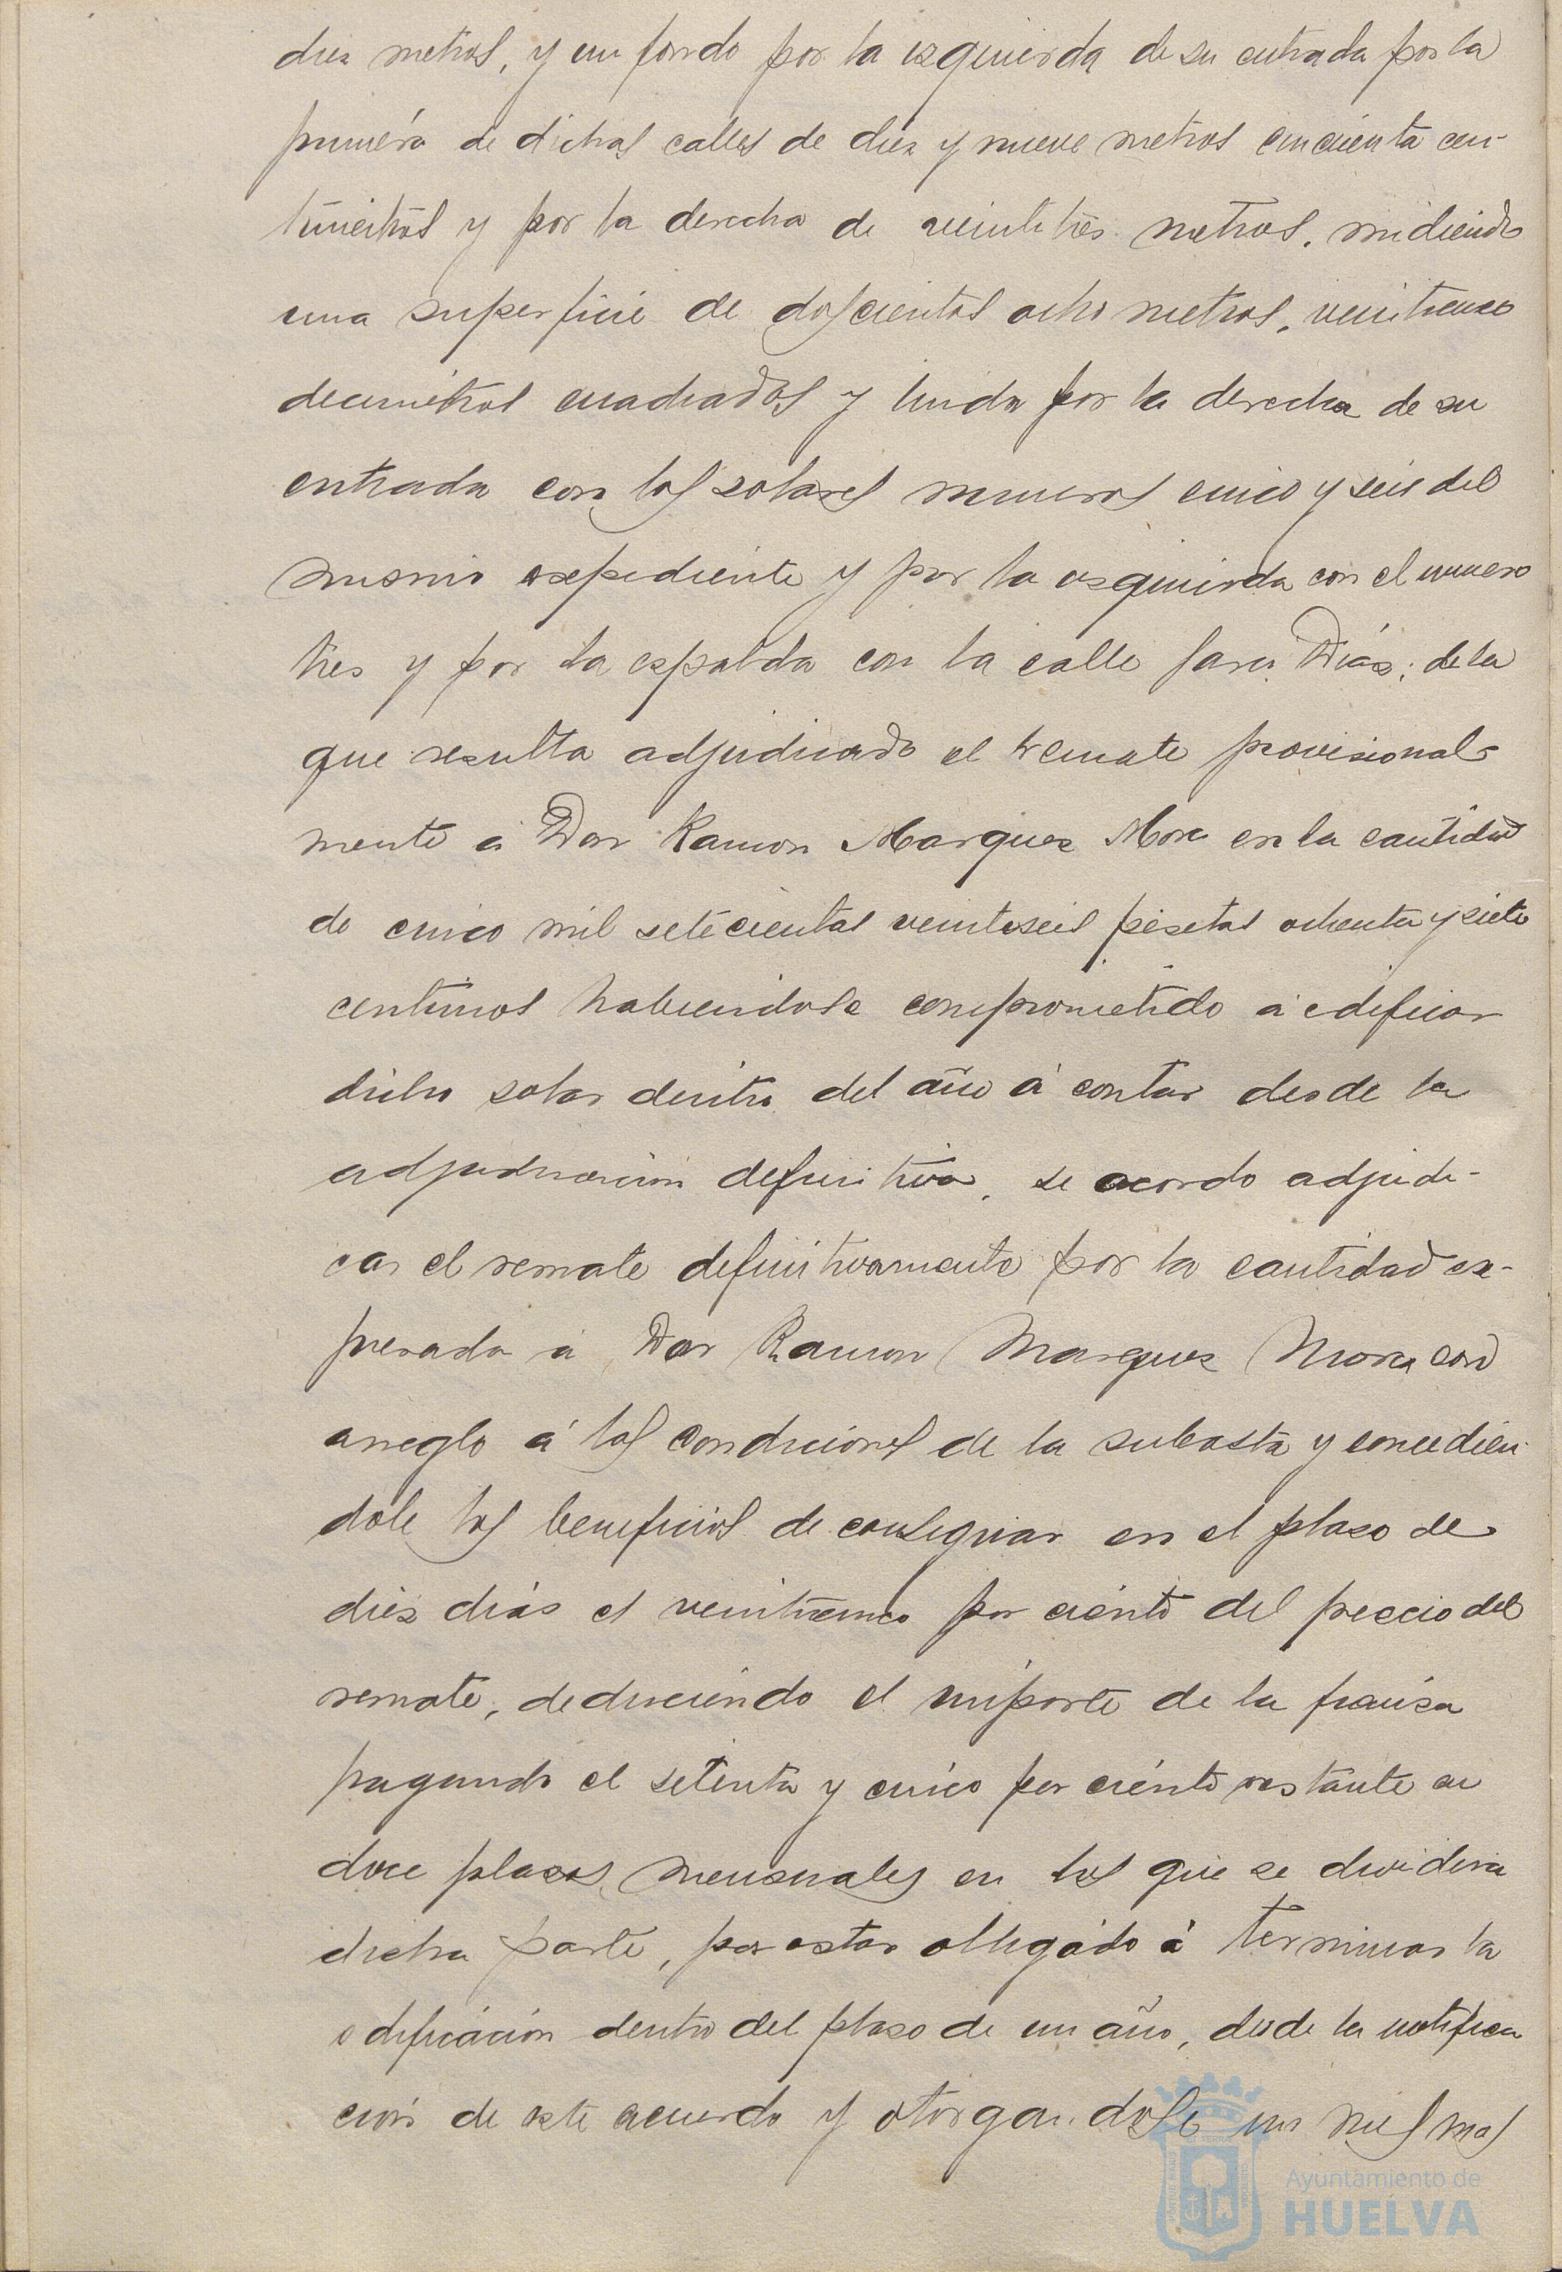 diez metros, y un fondo por la izquierda de su entrada por la
primera de dichas calles de diez y nueve metros cincuenta cen-
timetros y por la derecha de veintitres metros, midiendo
una superficie de doscientos ocho metros, veinticinco
decimetros cuadrados y linda por la derecha de su
entrada con los solares numeros cinco y seis del
mismo expediente y por la izquierda con el numero
tres y por la espalda con la calle Díaz; de la
que resulta adjudicado el remate provisional-
mente á Don Ramon Marquez Mora en la cantidad
de cinco mil setecientas veintiseis pesetas ochenta y siete
centimos habiendose comprometido á edificar
dicho solar dentro del año á contar desde la
adjudicacion definitiva, se acordo adjudi-
car el remate definitivamente por la cantidad ex-
presada á Don Ramon Marquez Mora con
arreglo á las condiciones de la subasta y concedien-
dole los beneficios de consignar en el plazo de
diez dias el veinticinco por ciento del precio del
remate, deduciendo el importe de la fianza
pagando el setenta y cinco por ciento restante en
doce plazos mensuales en los que se dividira
dicha parte, por estar obligado á terminar la
edificacion dentro del plazo de un año, desde la notifica
cion de este acuerdo y otorgandole un mes mas
Ayuntamiento de
HUELVA